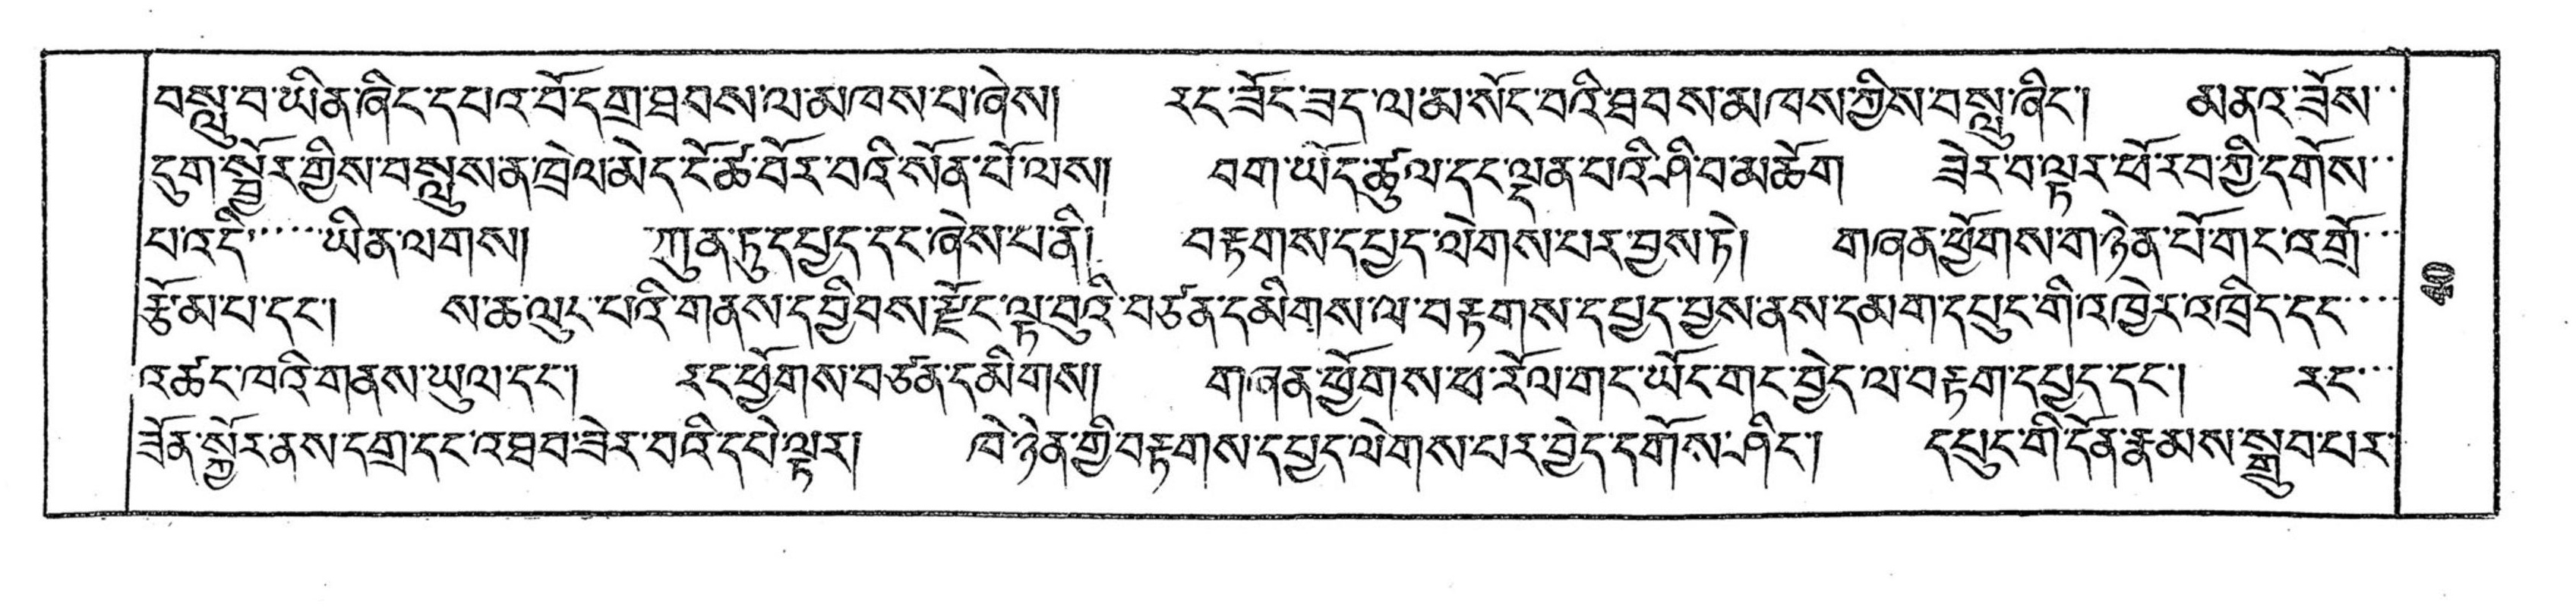 བསླུ་བ་ཡིན་ཞིང་དཔའ་བོ་དགྲ་ཐབས་ལ་མཁས་པ་ཞེས། རང་ཟོང་ཟད་ལ་མ་སོང་བའི་ཐབས་མཁས་ཀྱིས་བསླུ་ཞིང་། མནའ་ཟོས་
དུག་སྦྱོར་གྱིས་བསླུས་ན་ཁྲེལ་མེད་ངོ་ཚ་བོར་བའི་སོན་པོ་ལས། བག་ཡོད་ཚུལ་དང་ལྡན་པའི་ཤི་བ་མཆོག ཟེར་བ་ལྟར་ཕོ་རབ་ཀྱི་དགོས་
པ་འདི་ ཡིན་ལགས། ཀུན་ཏུ་དཔྱད་དང་ཞེས་པ་ནི། བརྟགས་དཔྱད་ལེགས་པར་བྱས་ཏེ། གཞན་ཕྱོགས་གཉེན་པོ་གང་འགྲོ་
རྩོ་མ་པ་དང་། ས་ཆ་ལུང་པའི་གནས་དབྱིབས་རྫོང་ལྟ་བུའི་བཙན་དམིགས་ལ་བརྟགས་དཔྱད་བྱས་ནས་དམག་དཔུང་གི་འཁྱེར་འཁྲིད་དང་
འཚང་ཁའི་གནས་ཡུལ་དང་། རང་ཕྱོགས་བཙན་དམིགས། གཞན་ཕྱོགས་ཕ་རོལ་གང་ཡོང་གང་བྱེད་ལ་བརྟག་དཔྱད་དང་། རང་
ཟོན་སྐྱོར་ནས་དགྲ་དང་འཐབ་ཟེར་བའི་དཔེ་ལྟར། ཁེ་ཉེན་གྱི་བརྟགས་དཔྱད་ལེགས་པར་བྱེད་དགོས་ཤིང་། དཔུང་གི་དོན་རྣམས་སྒྲུབ་པར་